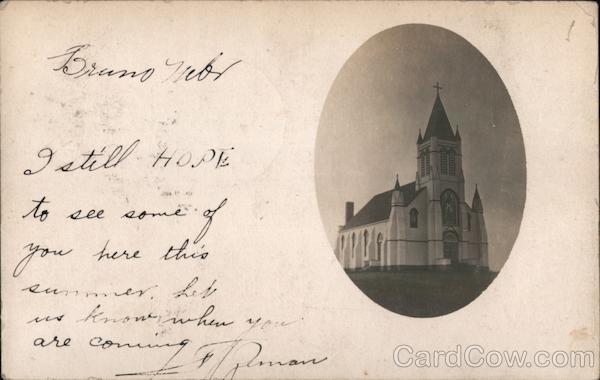 Bruno Nebr
I still HOPE
to see some of
you here this
summer. Let
us know when you
are coming
CardCow.com